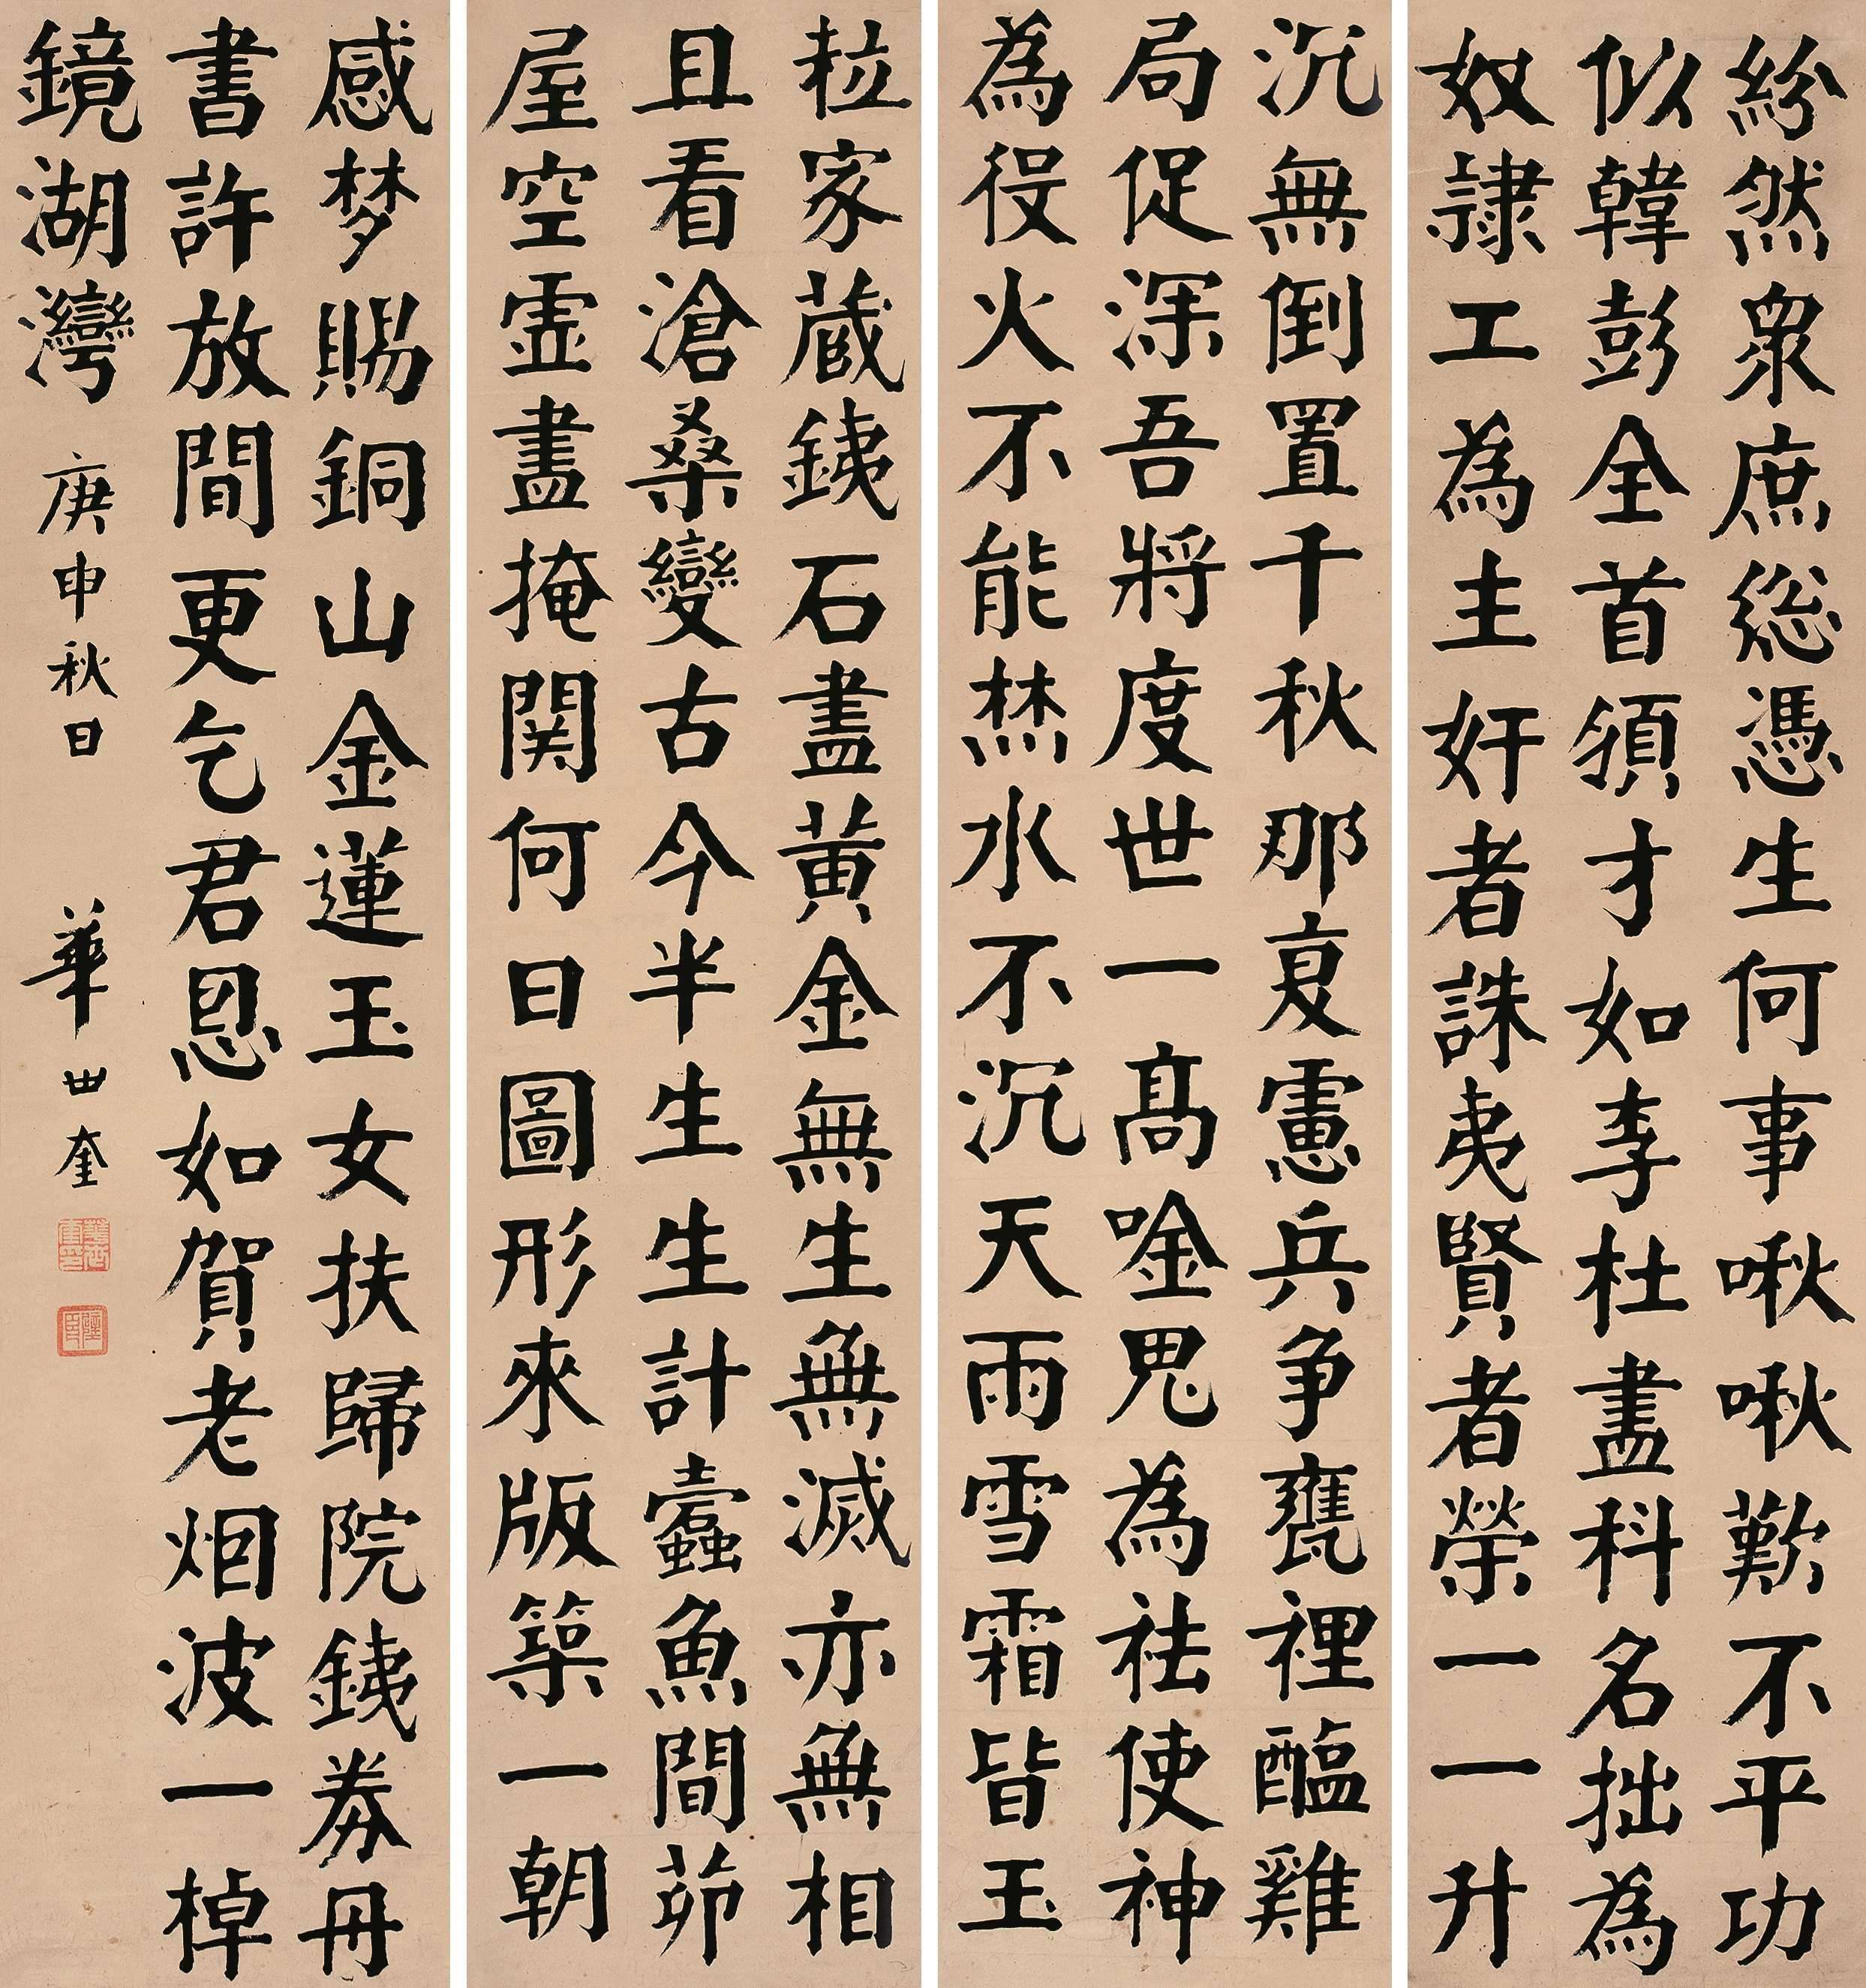 紛然衆庶総憑生何事啾啾歎不平功
似韓彭全首領才如李杜盡科名拙為
奴隷工為主奸者誅夷賢者榮一一升
沉無倒置千秋那更慮兵爭甕裡醯雞
局促深吾將度世一高唫鬼為祛使神
為役火不能焚水不沉天雨雪霜皆玉
粒家蔵銕石盡黃金無生無滅亦無相
且看滄桑變古今半生生計蠹魚間茆
屋空虛盡掩関何日圖形來版築一朝
感梦賜銅山金蓮玉女扶歸院銕券丹
書許放間更乞君恩如賀老烟波一棹
鏡湖灣
庚申秋日 華世奎
華世奎印